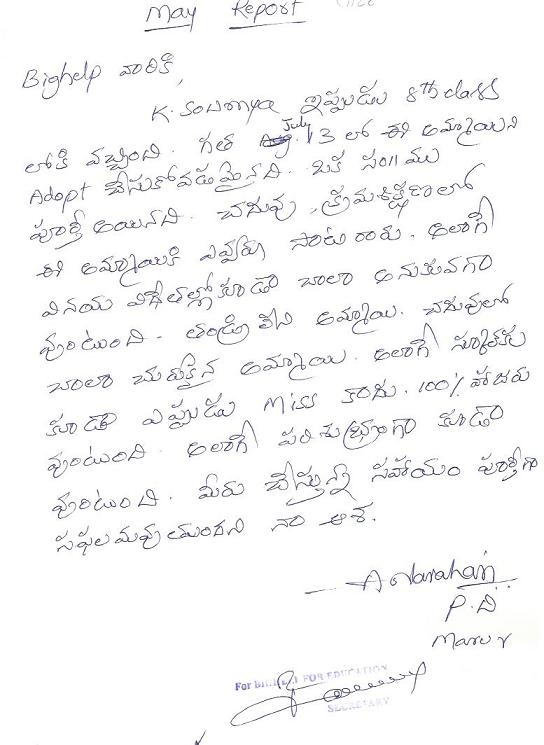 May Report
Bighelp వారికి,
K. Sowmya ఇప్పుడు 8th class
లోకి వచ్చింది. గత July 13 లో ఈ అమ్మాయిని
Adopt చేసుకోవడమైనది. ఒక సం॥ము
పూర్తి అయినది. చదువు, క్రమశిక్షణలో
ఈ అమ్మాయికి ఎవ్వరు సాటి రారు. అలాగే
వినయ విధేతల్లో కూడా చాలా అనుకువగా
వుంటుంది. తండ్రి లేని అమ్మాయి. చదువులో
చాలా చురుకైన అమ్మాయి. అలాగే స్కూల్‌కు
కూడా ఎప్పుడు Miss కాదు. 100% హాజరు
వుంటుంది. అలాగే పరిశుభ్రంగా కూడా
వుంటుంది. మీరు చేస్తున్న సహాయం పూర్తిగా
సఫలమవుతుందని నా ఆశ.
A Narahari
P.D
For BIGHELP FOR EDUCATION
SECRETARY